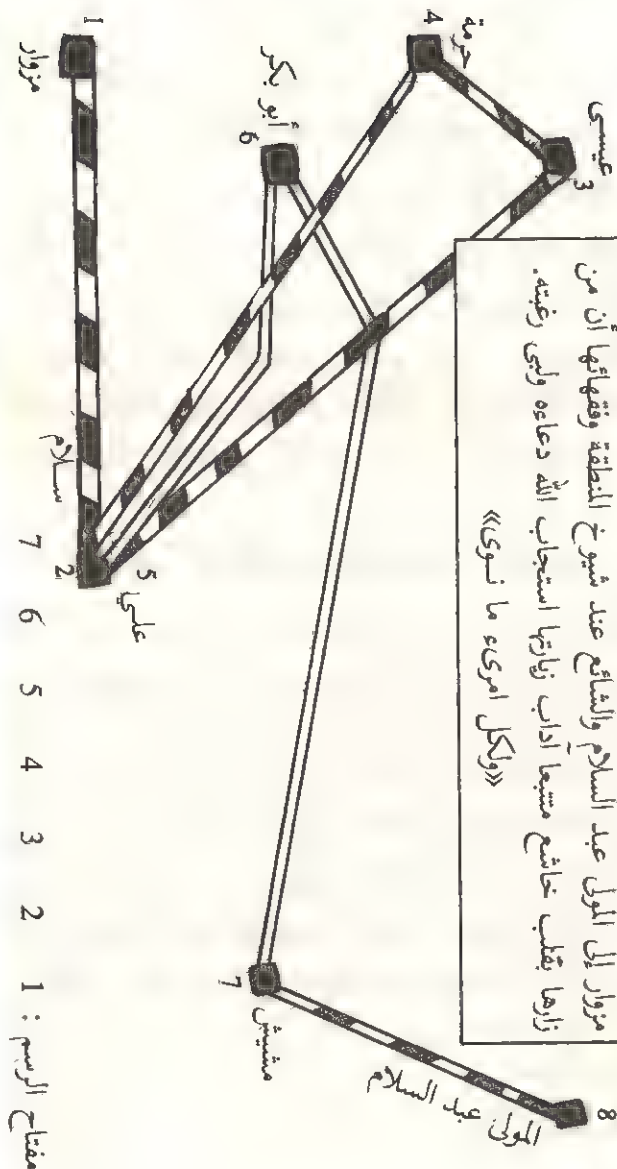 مزوار إلى المولى عبد السلام والشائع عند شيوخ المنطقة وفقهائها أن من
زارها بقلب خاشع متبعاً آداب زيارتها استجاب الله دعاءه ولبى رغبته.
«ولكل امرىء ما نوى»
3
عيسى
4
حرمة
6
أبو بكر
1
مزوار
8
المولى عبد السلام
7
مشيش
5
علي
2
سلام
مفتاح الرسم : 1 2 3 4 5 6 7